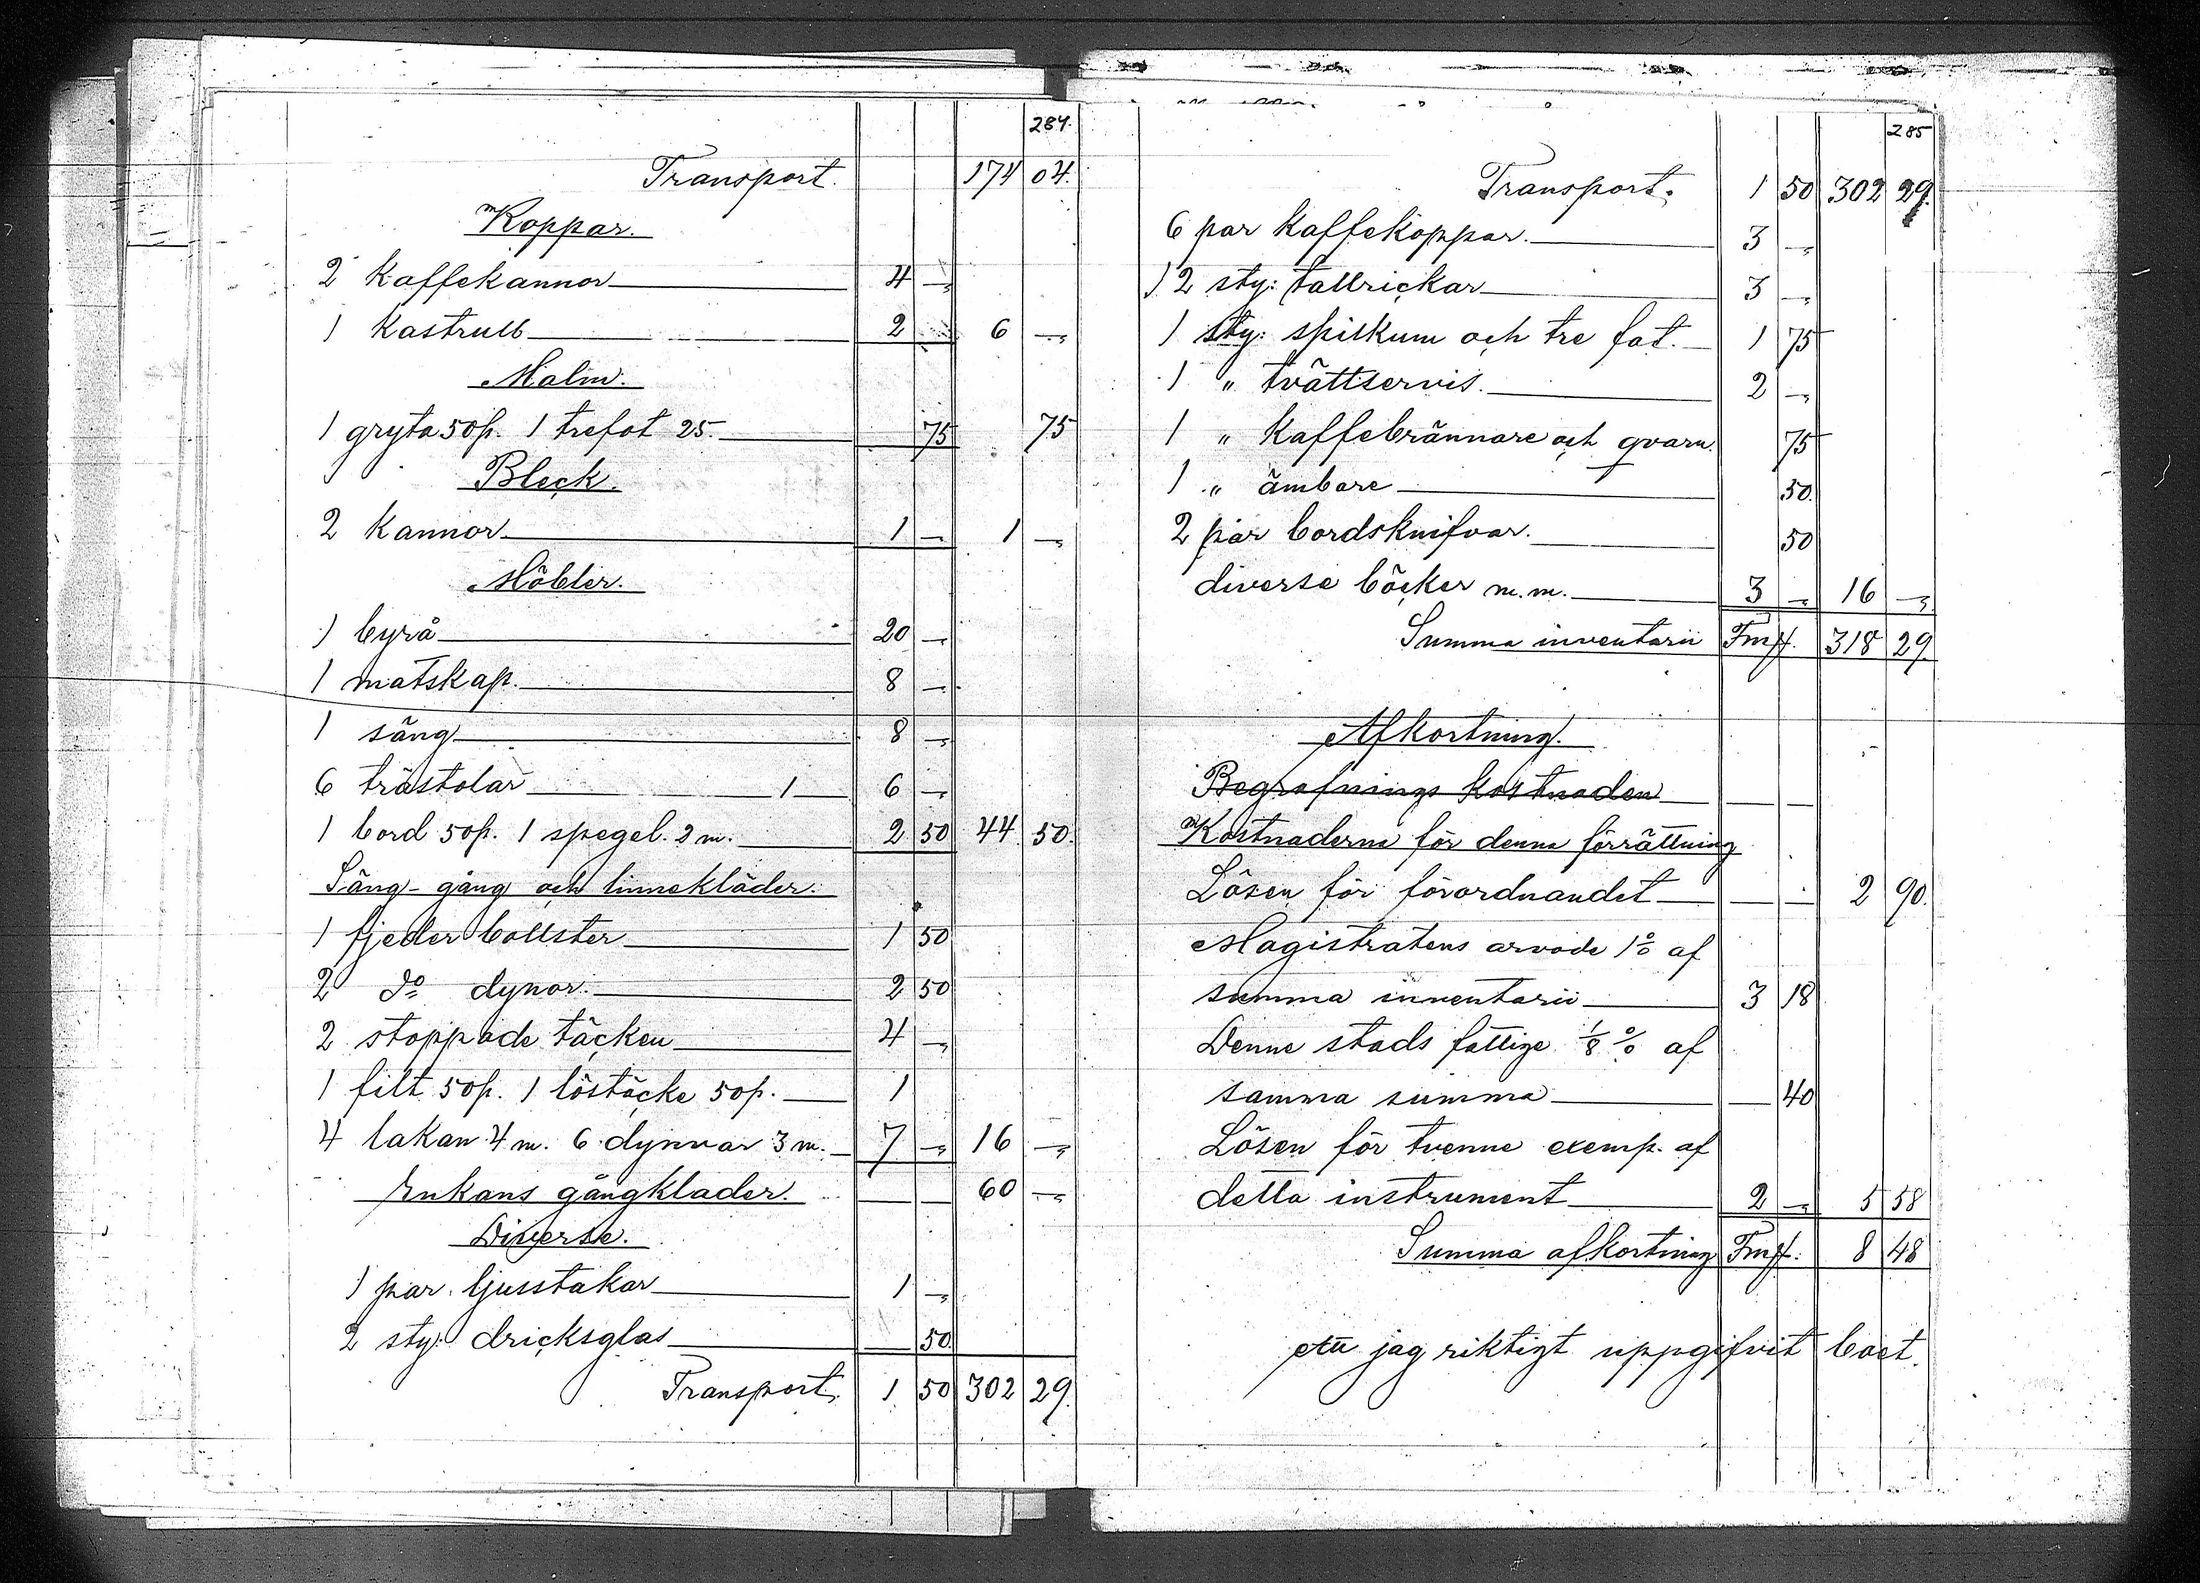 284.
Transport. 174 04.
Koppar.
2 kaffekannor 4 — 
1 kastrull 2 — 6 —
Malm.
1 gryta 50 p. 1 trefot 25. 75 75
Bleck.
2 kannor 1 — 1 —
Möbler.
1 byrå 20 —
1 matskåp. 8 —
1 säng 8 —
6 trästolar 1 6 —
1 bord 50 p. 1 spegel. 2 m. 2 50 44 50.
Säng- gång och linnekläder.
1 fjeder bollster 1 50
2 do dynor. 2 50
2 stoppade täcken 4 —
1 filt 50 p. 1 löstäcke 50 p. 1
4 lakan 4 m. 6 dynvar 3 m. 7 — 16 —
Enkans gångkläder. — — 60 —
Diverse.
1 par. ljusstakar 1 —
2 sty: dricksglas — 50.
Transport. 1 50 302 29.
285
Transport. 1 50 302 29.
6 par kaffekoppar. 3 —
12 sty: tallrickar 3 —
1 sty: spilkum och tre fat. 1 75
1 " tvättservis. 2 —
1 " kaffebrännare och qvarn. 75
1 " ämbare 50.
2 par bordsknifvar. 50
diverse böcker m.m. 3 — 16 —
Summa inventarii Fmk. 318 29.
Afkortning.
Begrafnings kostnaden — —
Kostnaderna för denna förrättning
Lösen för förordnandet — — 2 90.
Magistratens arvode 1 % af
summa inventarii 3 18
Denne stads fattige 1/8 % af
samma summa — 40
Lösen för tvenne exemp. af
detta instrument 2 — 5 58
Summa afkortning Fmk: 8 48
Att jag riktigt uppgifvit boet.